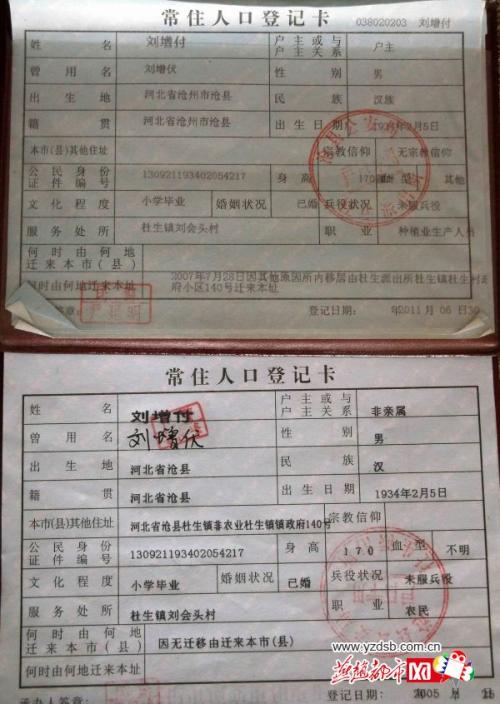 常住人口登记卡
038020203 刘增付
姓 名 刘增付 户主或与户主关系 户主
曾用名 刘增伏 性别 男
出生地 河北省沧州市沧县 民族 汉族
籍贯 河北省沧州市沧县 出生日期 1934年2月5日
本市(县)其他住址 宗教信仰 无宗教信仰
公民身份证件编号 130921193402054217 身高 170 血型 其他
文化程度 小学毕业 婚姻状况 已婚 兵役状况 未服兵役
服务处所 杜生镇刘会头村 职业 种植业生产人员
何时由何地迁来本市(县)
何时由何地迁来本址 2007年7月28日因其他原因所内移居由杜生派出所杜生镇杜生村政府小区140号迁来本址
登记日期: 2011年06月30
常住人口登记卡
姓 名 刘增付 户主或与户主关系 非亲属
曾用名 刘增伏 性别 男
出生地 河北省沧县 民族 汉
籍贯 河北省沧县 出生日期 1934年2月5日
本市(县)其他住址 河北省沧县杜生镇非农业杜生镇镇政府140号 宗教信仰
公民身份证件编号 130921193402054217 身高 170 血型 不明
文化程度 小学毕业 婚姻状况 已婚 兵役状况 未服兵役
服务处所 杜生镇刘会头村 职业 农民
何时由何地迁来本市(县) 因无迁移由迁来本市(县)
何时由何地迁来本址
www.yzdsb.com.cn
燕赵都市网
承办人签章: 登记日期: 2005年 月 日